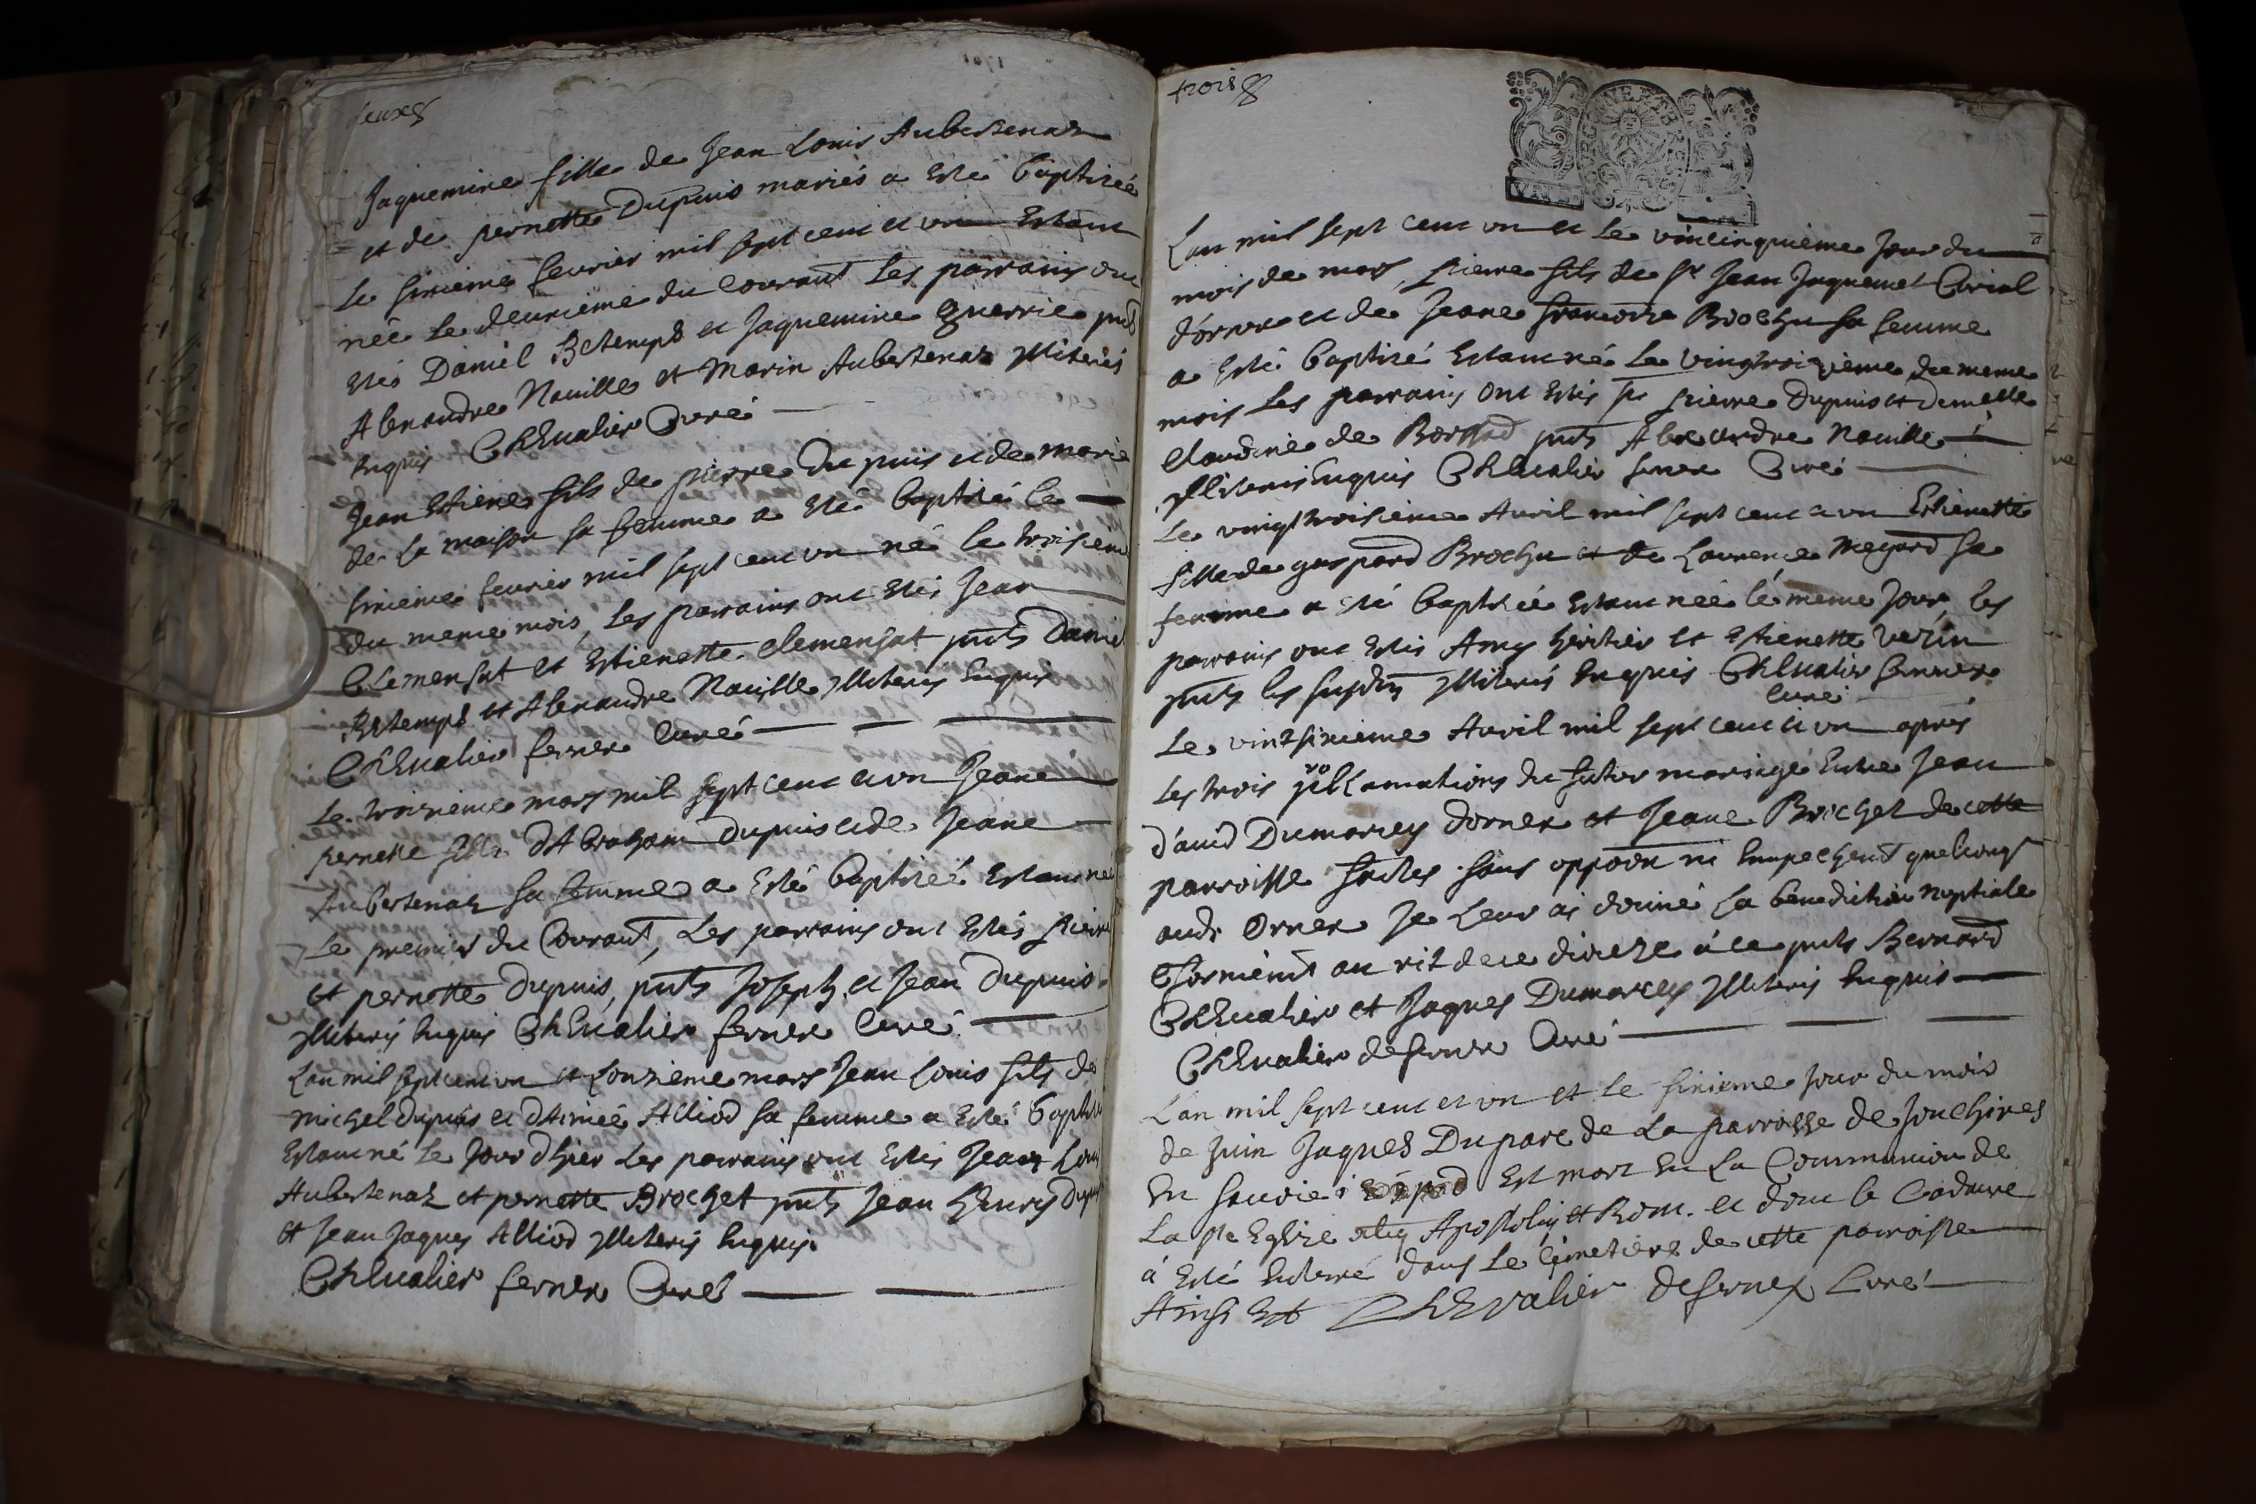 deuxe
Jaquemine fille de Jean Louis Aubertenat
et de pernette Dupuis mariés a esté baptisée
le sixieme fevrier mil sept cent et un Estant
née le deuxième du Courant les parrains ont
estés Daniel Betemps et Jaquemine guerrie pnts
Alexandre Nouille et Marin Aubertenat Illiterés
Enquis Chevalier Curé
Jean Estiene fils de pierre Dupuis et de marie
de la maison sa femme a esté baptisé le
sixieme fevrier mil sept cent un né le troisieme
du meme mois, les parrains ont estés Jean
Clemensat et Estienette Clemensat pnts Daniel
Betemps et Alexandre Nouille Illiterés Enquis
Chevalier fernex Curé
Le troisieme mars mil sept cent et un Jeane
pernette fille d'Abraham Dupuis et de Jeane
Aubertenat sa femme a esté baptisée Estant née
Le premier du Courant, les parrains ont estés pierre
et pernette Dupuis, pnts Joseph et Jean Dupuis
Illiterés Enquis Chevalier fernex Curé
L'an mil sept cent un et l'onzieme mars Jean Louis fils de
michel dupuis et d'Aimée Alliod sa femme a esté baptisé
Estant né le Jour d'hier les parrains ont estés Jean Louis
Aubertenat et pernette Brochet pnts Jean Henry dupuis
et Jean Jaques Alliod Illiterés Enquis
Chevalier fernex Curé
trois
L'an mil sept cent un et le vincinquième Jour du
mois de mars, pierre fils de Sr Jean Jaquemet Curial
d'ornex et de Jeane francoize Brochu sa femme
a esté baptizé Estant né le vingtroizieme du meme
mois les parrains ont estés Sr pierre Dupuis et Demelle
Claudine de pnts Alexandre Nouille
Illiterés Enquis Chevalier fernex Curé
Le vingttroisieme Avril mil sept cent et un Estienette
fille de gaspard Brochu et de Laurence Megard sa
femme a esté baptisée Estant née le meme Jour, les
parrains ont estés Amy heritier et Estienette Verin
pnts les susdits Illiterés Enquis Chevalier fernex
Curé
Le vintsixieme Avril mil sept cent et un après
les trois proclamations du futur mariage Entre Jean
david Dumarcey dornex et Jeane Brochet de cette
parroisse faites sans opposon ni Empechemt quelconq
audt Ornex Je leur ai donné la benediction nuptiale
Conformémt au rit de ce dioceze à ce pnts Bernard
Chevalier et Jaques Dumarcey Illiterés Enquis
Chevalier de fernex Curé
L'an mil sept cent et un et le sixieme Jour du mois
de Juin Jaques Duparc de la parroisse de
En Savoie Est mort En la Communion de
La Ste Eglize Apostoliq et Rom. et dont le Cadavre
à Esté Enterré dans le Cimetiere de cette parroisse
Ainsi Est Chevalier de fernex Curé